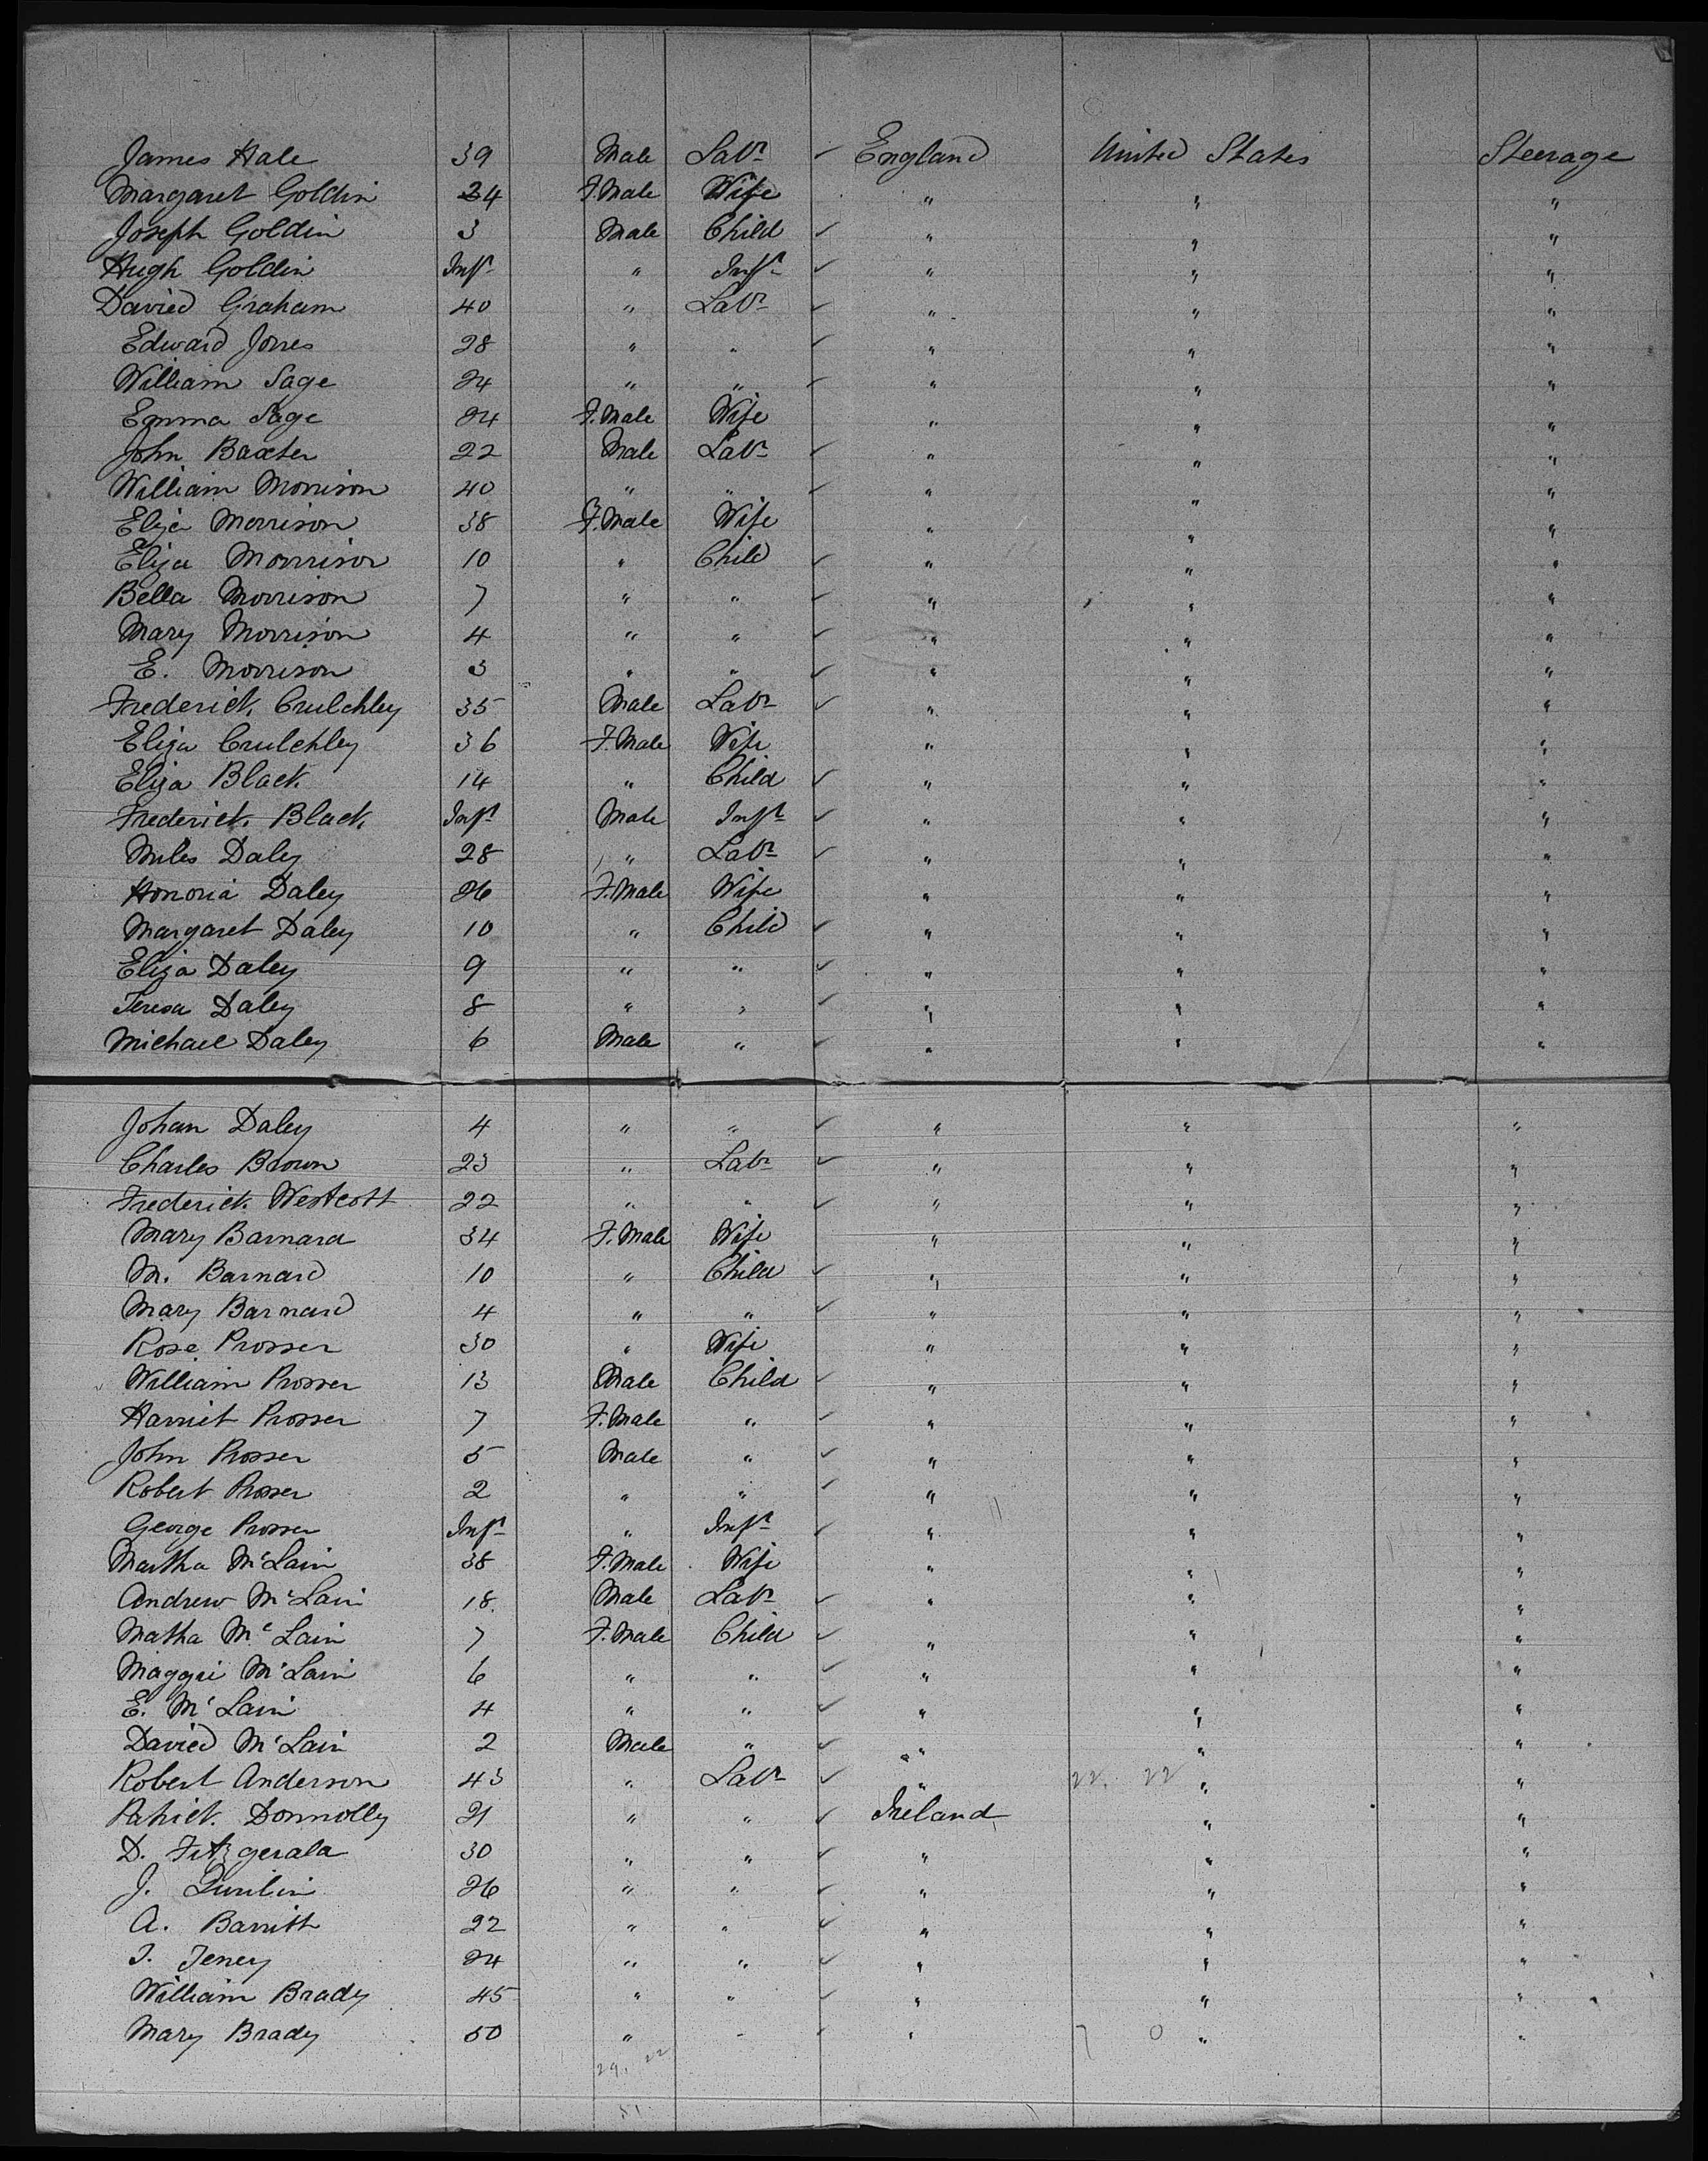 James Hale 39 Male Labr ✓ England United States Steerage
Margaret Goldin 24 F.Male Wife " " "
Joseph Goldin 3 Male Child ✓ " " "
Hugh Goldin Inft " Inft ✓ " " "
David Graham 40 " Labr ✓ " " "
Edward Jones 28 " " ✓ " " "
William Sage 24 " " ✓ " " "
Emma Sage 24 F.Male Wife " " "
John Baxter 22 Male Labr ✓ " " "
William Morrison 40 " " ✓ " " "
Eliza Morrison 38 F.Male Wife " " "
Eliza Morrison 10 " Child ✓ " " "
Bella Morrison 7 " " ✓ " " "
Mary Morrison 4 " " ✓ " " "
E. Morrison 3 " " ✓ " " "
Frederick Crulchley 35 Male Labr ✓ " " "
Eliza Crulchley 36 F.Male Wife " " "
Eliza Black 14 " Child ✓ " " "
Frederick Black Inft Male Inft ✓ " " "
Miles Daley 28 " Labr ✓ " " "
Honoria Daley 26 F.Male Wife " " "
Margaret Daley 10 " Child ✓ " " "
Eliza Daley 9 " " ✓ " " "
Teresa Daley 8 " " ✓ " " "
Michael Daley 6 Male " ✓ " " "
Johan Daley 4 " " ✓ " " "
Charles Brown 23 " Labr ✓ " " "
Frederick Westcott 22 " " ✓ " " "
Mary Barnard 34 F.Male Wife " " "
M. Barnard 10 " Child ✓ " " "
Mary Barnard 4 " " ✓ " " "
Rose Prosser 30 " Wife " " "
William Prosser 13 Male Child ✓ " " "
Harriet Prosser 7 F.Male " ✓ " " "
John Prosser 5 Male " ✓ " " "
Robert Prosser 2 " " ✓ " " "
George Prosser Inft " Inft ✓ " " "
Martha McLain 38 F.Male Wife " " "
Andrew McLain 18 Male Labr ✓ " " "
Matha McLain 7 F.Male Child ✓ " " "
Maggie McLain 6 " " ✓ " " "
E. McLain 4 " " ✓ " " "
David McLain 2 Male " ✓ " " "
Robert Anderson 43 " Labr ✓ " 22. 22 " "
Patrick Donnolly 21 " " ✓ Ireland " "
D. Fitzgerald 30 " " ✓ " " "
J. 26 " " ✓ " " "
A. Barrith 22 " " ✓ " " "
24 " " ✓ " " "
William Brady 45 " " ✓ " " "
Mary Brady 50 " " ✓ " 7 0 " "
29. 22
51